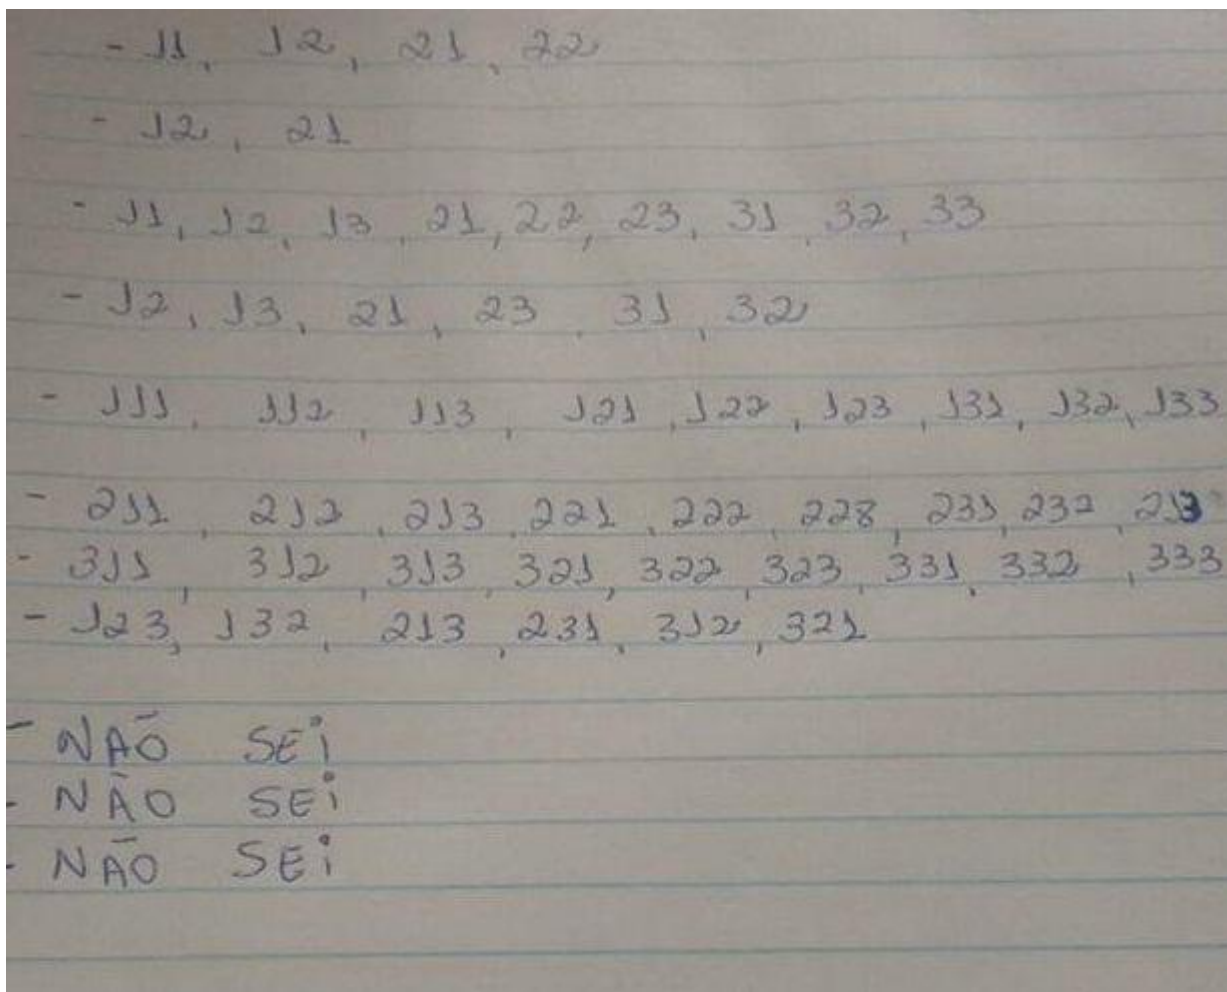 - 11, 12, 21, 22
- 12, 21
- 11, 12, 13, 21, 22, 23, 31, 32, 33
- 12, 13, 21, 23, 31, 32
- 111, 112, 113, 121, 122, 123, 131, 132, 133
- 211, 212, 213, 221, 222, 228, 231, 232, 213
- 311, 312, 313, 321, 322, 323, 331, 332, 333
- 123, 132, 213, 231, 312, 321
- NÃO SEi
- NÃO SEi
- NÃO SEi